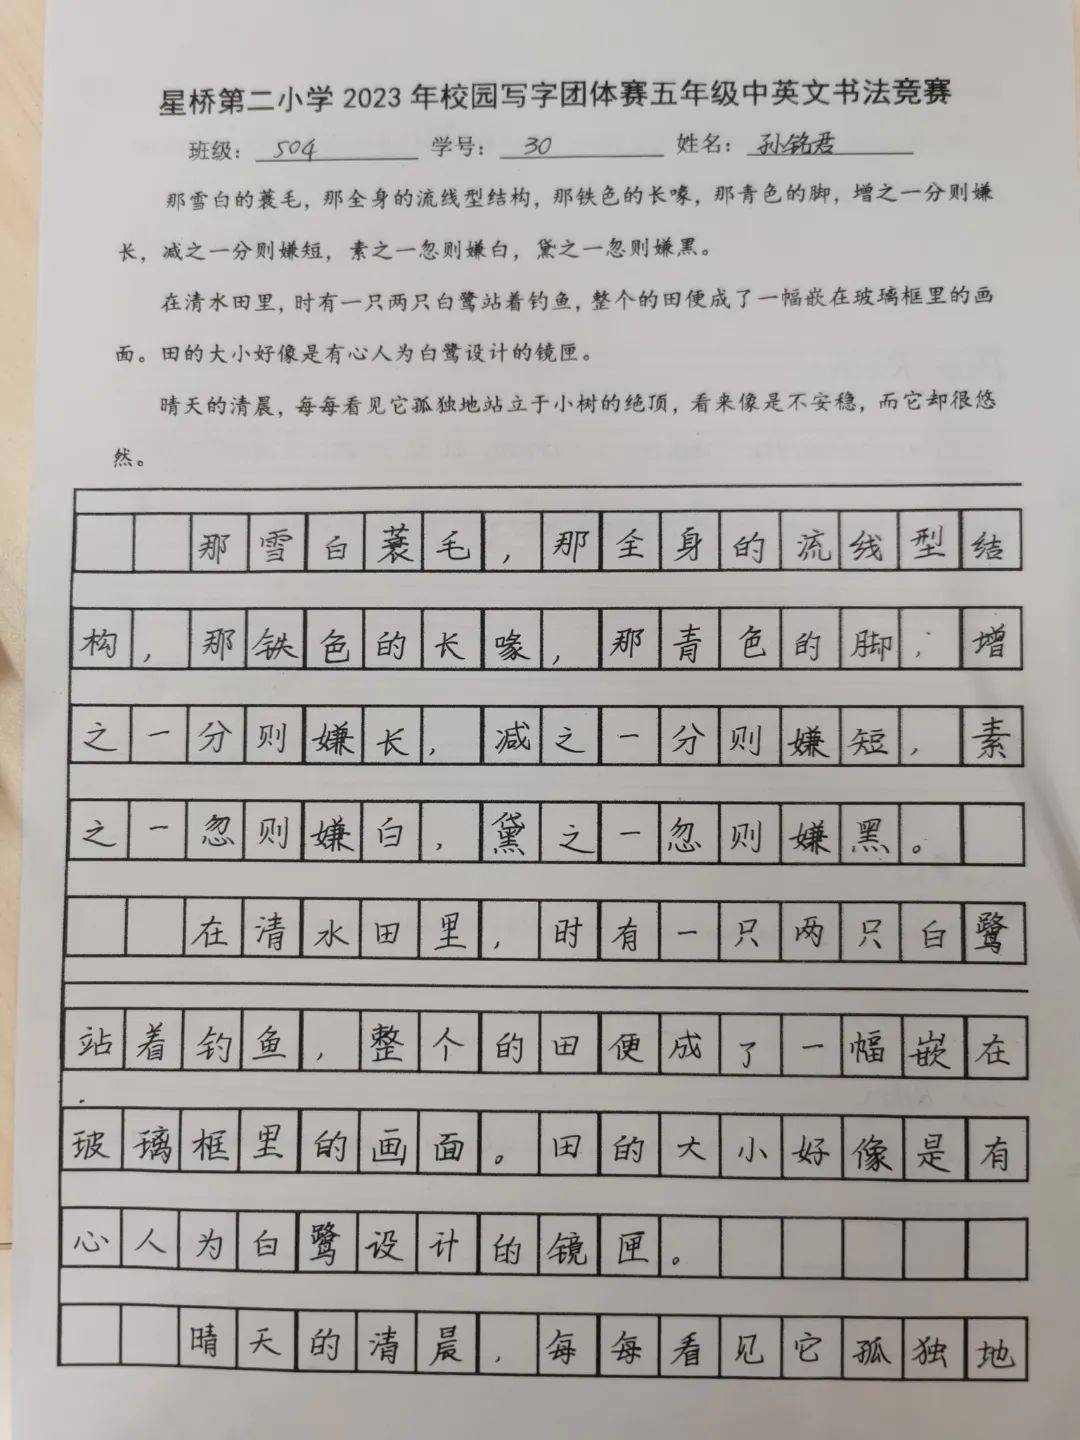 星桥第二小学 2023 年校园写字团体赛五年级中英文书法竞赛
班级： 504 学号： 30 姓名： 孙铭君
那雪白的蓑毛，那全身的流线型结构，那铁色的长喙，那青色的脚，增之一分则嫌
长，减之一分则嫌短，素之一忽则嫌白，黛之一忽则嫌黑。
在清水田里，时有一只两只白鹭站着钓鱼，整个的田便成了一幅嵌在玻璃框里的画
面。田的大小好像是有心人为白鹭设计的镜匣。
晴天的清晨，每每看见它孤独地站立于小树的绝顶，看来像是不安稳，而它却很悠
然。
那雪白蓑毛，那全身的流线型结
构，那铁色的长喙，那青色的脚，增
之一分则嫌长，减之一分则嫌短，素
之一忽则嫌白，黛之一忽则嫌黑。
在清水田里，时有一只两只白鹭
站着钓鱼，整个的田便成了一幅嵌在
玻璃框里的画面。田的大小好像是有
心人为白鹭设计的镜匣。
晴天的清晨，每每看见它孤独地